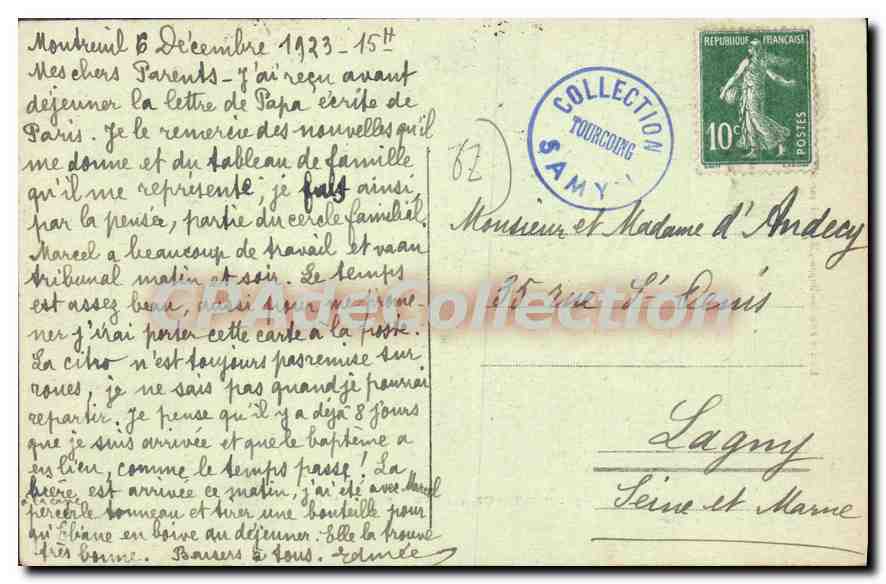 Montreuil 6 Décembre 1923 - 15H
Mes chers Parents - J'ai reçu avant
déjeuner la lettre de Papa écrite de
Paris. Je le remercie des nouvelles qu'il
me donne et du tableau de famille
qu'il me représente, je fais ainsi,
par la pensée, partie du cercle familial.
Marcel a beaucoup de travail et va au
tribunal matin et soir. Le temps
est assez beau, aussi pour me prome-
ner j'irai porter cette carte à la poste.
La citro n'est toujours pas remise sur
roues, je ne sais pas quand je pourrai
repartir. Je pense qu'il y a déjà 8 jours
que je suis arrivée et que le baptême a
eu lieu, comme le temps passe! La
bière est arrivée ce matin, j'ai été avec Marcel
à la cave
percer le tonneau et tirer une bouteille pour
qu'Ebiane en boive au déjeuner. Elle la trouve
très bonne. Baisers à tous. Edmée
62
COLLECTION
TOURCOING
SAMY
REPUBLIQUE FRANÇAISE
10c
POSTES
Monsieur et Madame d'Andecy
35 rue St Denis
Lagny
Seine et Marne
CPAdeCollection